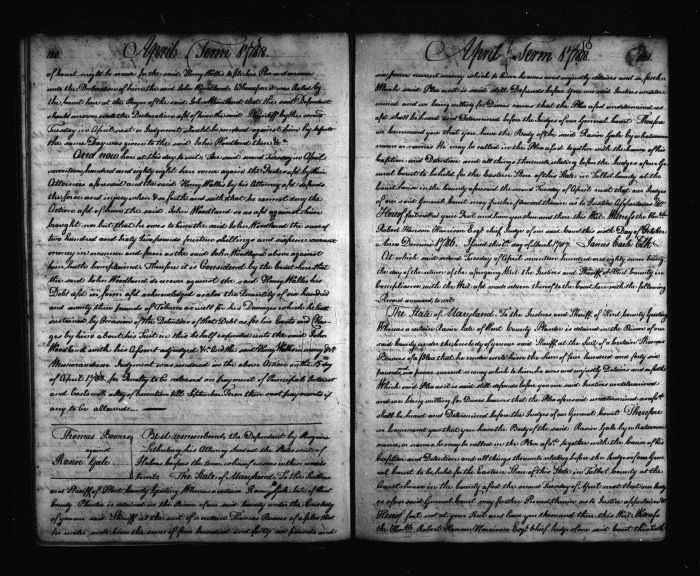 April Term 1788.
of Court might be made for the said Henry Wallis to file his Plea and answer
unto the Declaration of him the said John Woodland. Whereupon it was Ruled by
the Court here at the Prayer of the said John Woodland that the said Defendant
should answer unto the Declaration afd of him the said Plaintiff by the second
Tuesday in April next or Judgment should be rendered against him by default
the same Day was given to the said John Woodland there &c
And now here at this day to wit the said second Tuesday in April
seventeen hundred and eighty eight here came again the Parties afd by their
Attornies aforesaid and the said Henry Wallis by his Attorney afd defends
the force and injury when &c and saith that he cannot deny the
Action afd of him the said John Woodland so as afd against him
brought nor but that he owes to him the said John Woodland the sum of
two hundred and sixty two pounds fourteen shillings and six pence current
money in manner and form as the said John Woodland above against
him hath Complained. Therefore it is Considered by the Court here that
the said John Woodland recover against the said Henry Wallis his
Debt afd in form afd acknowledged as also the Quantity of one hundred
and ninety three pounds of Tobacco as well for his Damages which he hath
sustained by Occasion of the Detention of that Debt as for his Costs and Char-
ges by him about his Suit in this behalf expended unto the said John
Woodland with his Assent adjudged &c And the said Henry Wallis in mercy &c
Memorandum Judgment was rendered in the above Action on the day
of April 1788 for Penalty to be released on payment of Principal Interest
and Costs with stay of Execution till September Term then next payments if
any to be allowed
Thomas Bowers
against
Rasin Gale
Be it remembered the Defendant by
his Attorney sued out the Writ of
before the time whereof
The State of Maryland To the Justices
and Sheriff of Kent County Greeting Whereas a certain Rasin Gale late of Kent
County Planter is detained in the Prison of our said County under the Custody
of you our said Sheriff at the suit of a certain Thomas Bowers of a plea that
he render unto him the sum of four hundred and forty six pounds and
April Term 1788.
six pence current money which to him he owes and unjustly detains and so forth
Which said Plea as it is said still Depends before you our said Justices undeter-
mined and we being willing for Divers causes that the Plea afd undetermined as
afd shall be heard and Determined before the Judges of our General Court Therefore
we command you that you have the Body of the said Rasin Gale by whatsoever
name or names He may be called in the Plea afd together with the cause of his
Caption and Detention and all things thereunto relating before the Judges of our Ge-
neral Court to be held for the Eastern Shore of this State in Talbot County at the
Court house in the County aforesaid the second Tuesday of April next that our Judges
of our said General Court may further proceed therein as to Justice appertaineth &c
Hereof fail not at your Peril and have you then and there this Writ Witness the Honble
Robert Hanson Harrison Esqr chief Judge of our said Court this sixth Day of October
Anno Domini 1786. Issued the 10th day of March 1787. James Earle Clk
At which said second Tuesday of April seventeen hundred eighty seven being
the day of the return of the aforegoing Writ the Justices and Sheriff of Kent County in
compliance with the Writ afd made return thereof to the Court here with the following
Record annexed to wit
The State of Maryland. To the Justices and Sheriff of Kent County Greeting
Whereas a certain Rasin Gale late of Kent County Planter is detained in the Prison of our
said County under the Custody of you our said Sheriff at the Suit of a certain Thomas
Bowers of a Plea that he render unto him the Sum of four hundred and forty six
pounds six pence current money which to him he owes and unjustly Detains and so forth
Which said Plea as it is said still depends before you our said Justices undetermined
and we being willing for Divers causes that the Plea aforesaid undetermined as afd
shall be heard and Determined before the Judges of our General Court Therefore
we command you that you have the Body of the said Rasin Gale by whatsoever
name or names he may be called in the Plea afd together with the cause of his
Caption and Detention and all things thereunto relating before the Judges of our Gene-
ral Court to be held for the Eastern Shore of the State in Talbot County at the
Court house in the County afd the second Tuesday of April next that our Judg-
es of our said General Court may further Proceed therein as to Justice appertaineth &c
Hereof fail not at your Peril and have you then and there this Writ. Witness
the Honble Robert Hanson Harrison Esqr chief Judge of our said Court this sixth